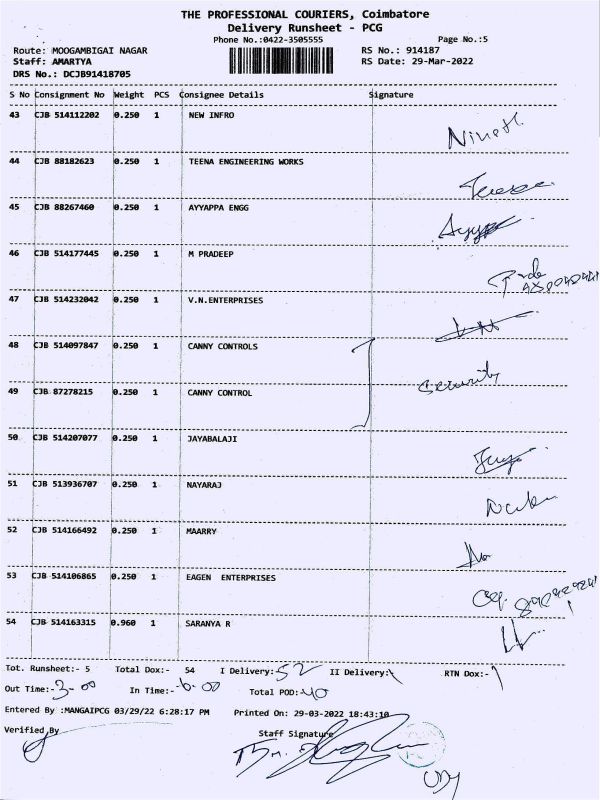 THE PROFESSIONAL COURIERS, Coimbatore
Delivery Runsheet - PCG
Phone No.:0422-3505555 Page No.:5
Route: MOOGAMBIGAI NAGAR RS No.: 914187
Staff: AMARTYA RS Date: 29-Mar-2022
DRS No.: DCJB91418705
S No Consignment No Weight PCS Consignee Details Signature
43 CJB 514112202 0.250 1 NEW INFRO
44 CJB 88182623 0.250 1 TEENA ENGINEERING WORKS
45 CJB 88267460 0.250 1 AYYAPPA ENGG
46 CJB 514177445 0.250 1 M PRADEEP
47 CJB 514232042 0.250 1 V.N.ENTERPRISES
48 CJB 514097847 0.250 1 CANNY CONTROLS
Security
49 CJB 87278215 0.250 1 CANNY CONTROL
50 CJB 514207077 0.250 1 JAYABALAJI
51 CJB 513936707 0.250 1 NAYARAJ
52 CJB 514166492 0.250 1 MAARRY
53 CJB 514106865 0.250 1 EAGEN ENTERPRISES
54 CJB 514163315 0.960 1 SARANYA R
Tot. Runsheet:- 5 Total Dox:- 54 I Delivery:- 52 II Delivery:- RTN Dox:-
Out Time:- 3-00 In Time:- 6-00 Total POD:- 40
Entered By :MANGAIPCG 03/29/22 6:28:17 PM Printed On: 29-03-2022 18:43:10
Verified By Staff Signature